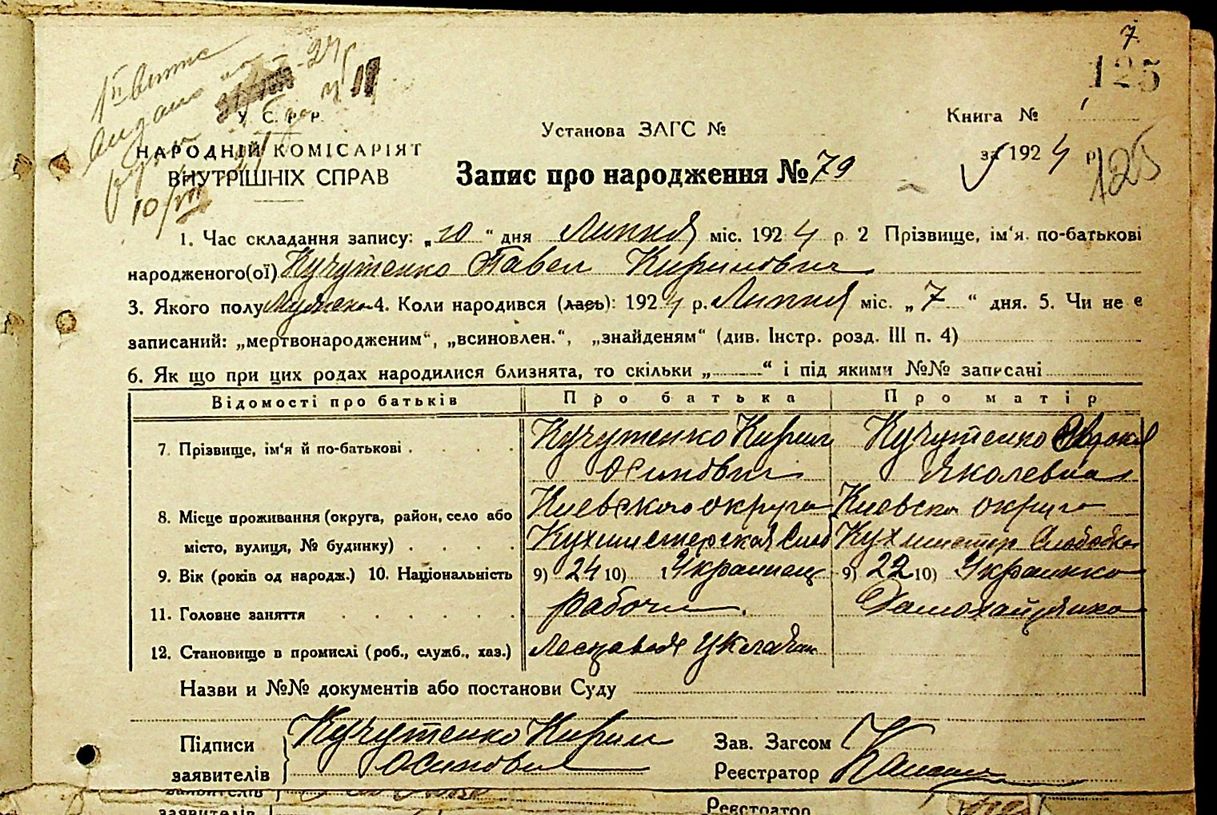 7
125
Іу витяг
видано на
10/VII
У. С. Р. Р.
НАРОДНІЙ КОМІСАРІЯТ
ВНУТРІШНІХ СПРАВ
Установа ЗАГС №
Книга №
за 1924 р.
125
Запис про народження № 79
1. Час складання запису: „10“ дня Липня міс. 1924 р 2 Прізвище, ім'я. по-батькові
народженого(ої) Кучутенко Павел Кирилович
3. Якого полу Мужеско 4. Коли народився (лась): 1924 р. Липня міс. „7“ дня. 5. Чи не є
записаний: „мертвонародженим“, „всиновлен.“, „знайденям“ (див. Інстр. розд. III п. 4)
6. Як що при цих родах народилися близнята, то скільки „ “ і під якими №№ записані
Відомості про батьків Про батька Про матір
7. Прізвище, ім'я й по-батькові Кучутенко Кирил Кучутенко
Осипович Яколевна
8. Місце проживання (округа, район, село або Киевского округа Киевско округа
місто, вулиця, № будинку) Кухмистерская Слоб Кухмистер Слободка
9. Вік (років од народж.) 10. Національність 9) 24 10) Украинец 9) 22 10) Украинка
11. Головне заняття рабочи Домохайзяика
12. Становище в промислі (роб., служб., хаз.)
Назви и №№ документів або постанови Суду
Підписи Кучутенко Кирил Зав. Загсом
заявителів Осипович Реєстратор
заявителів Реєстратор